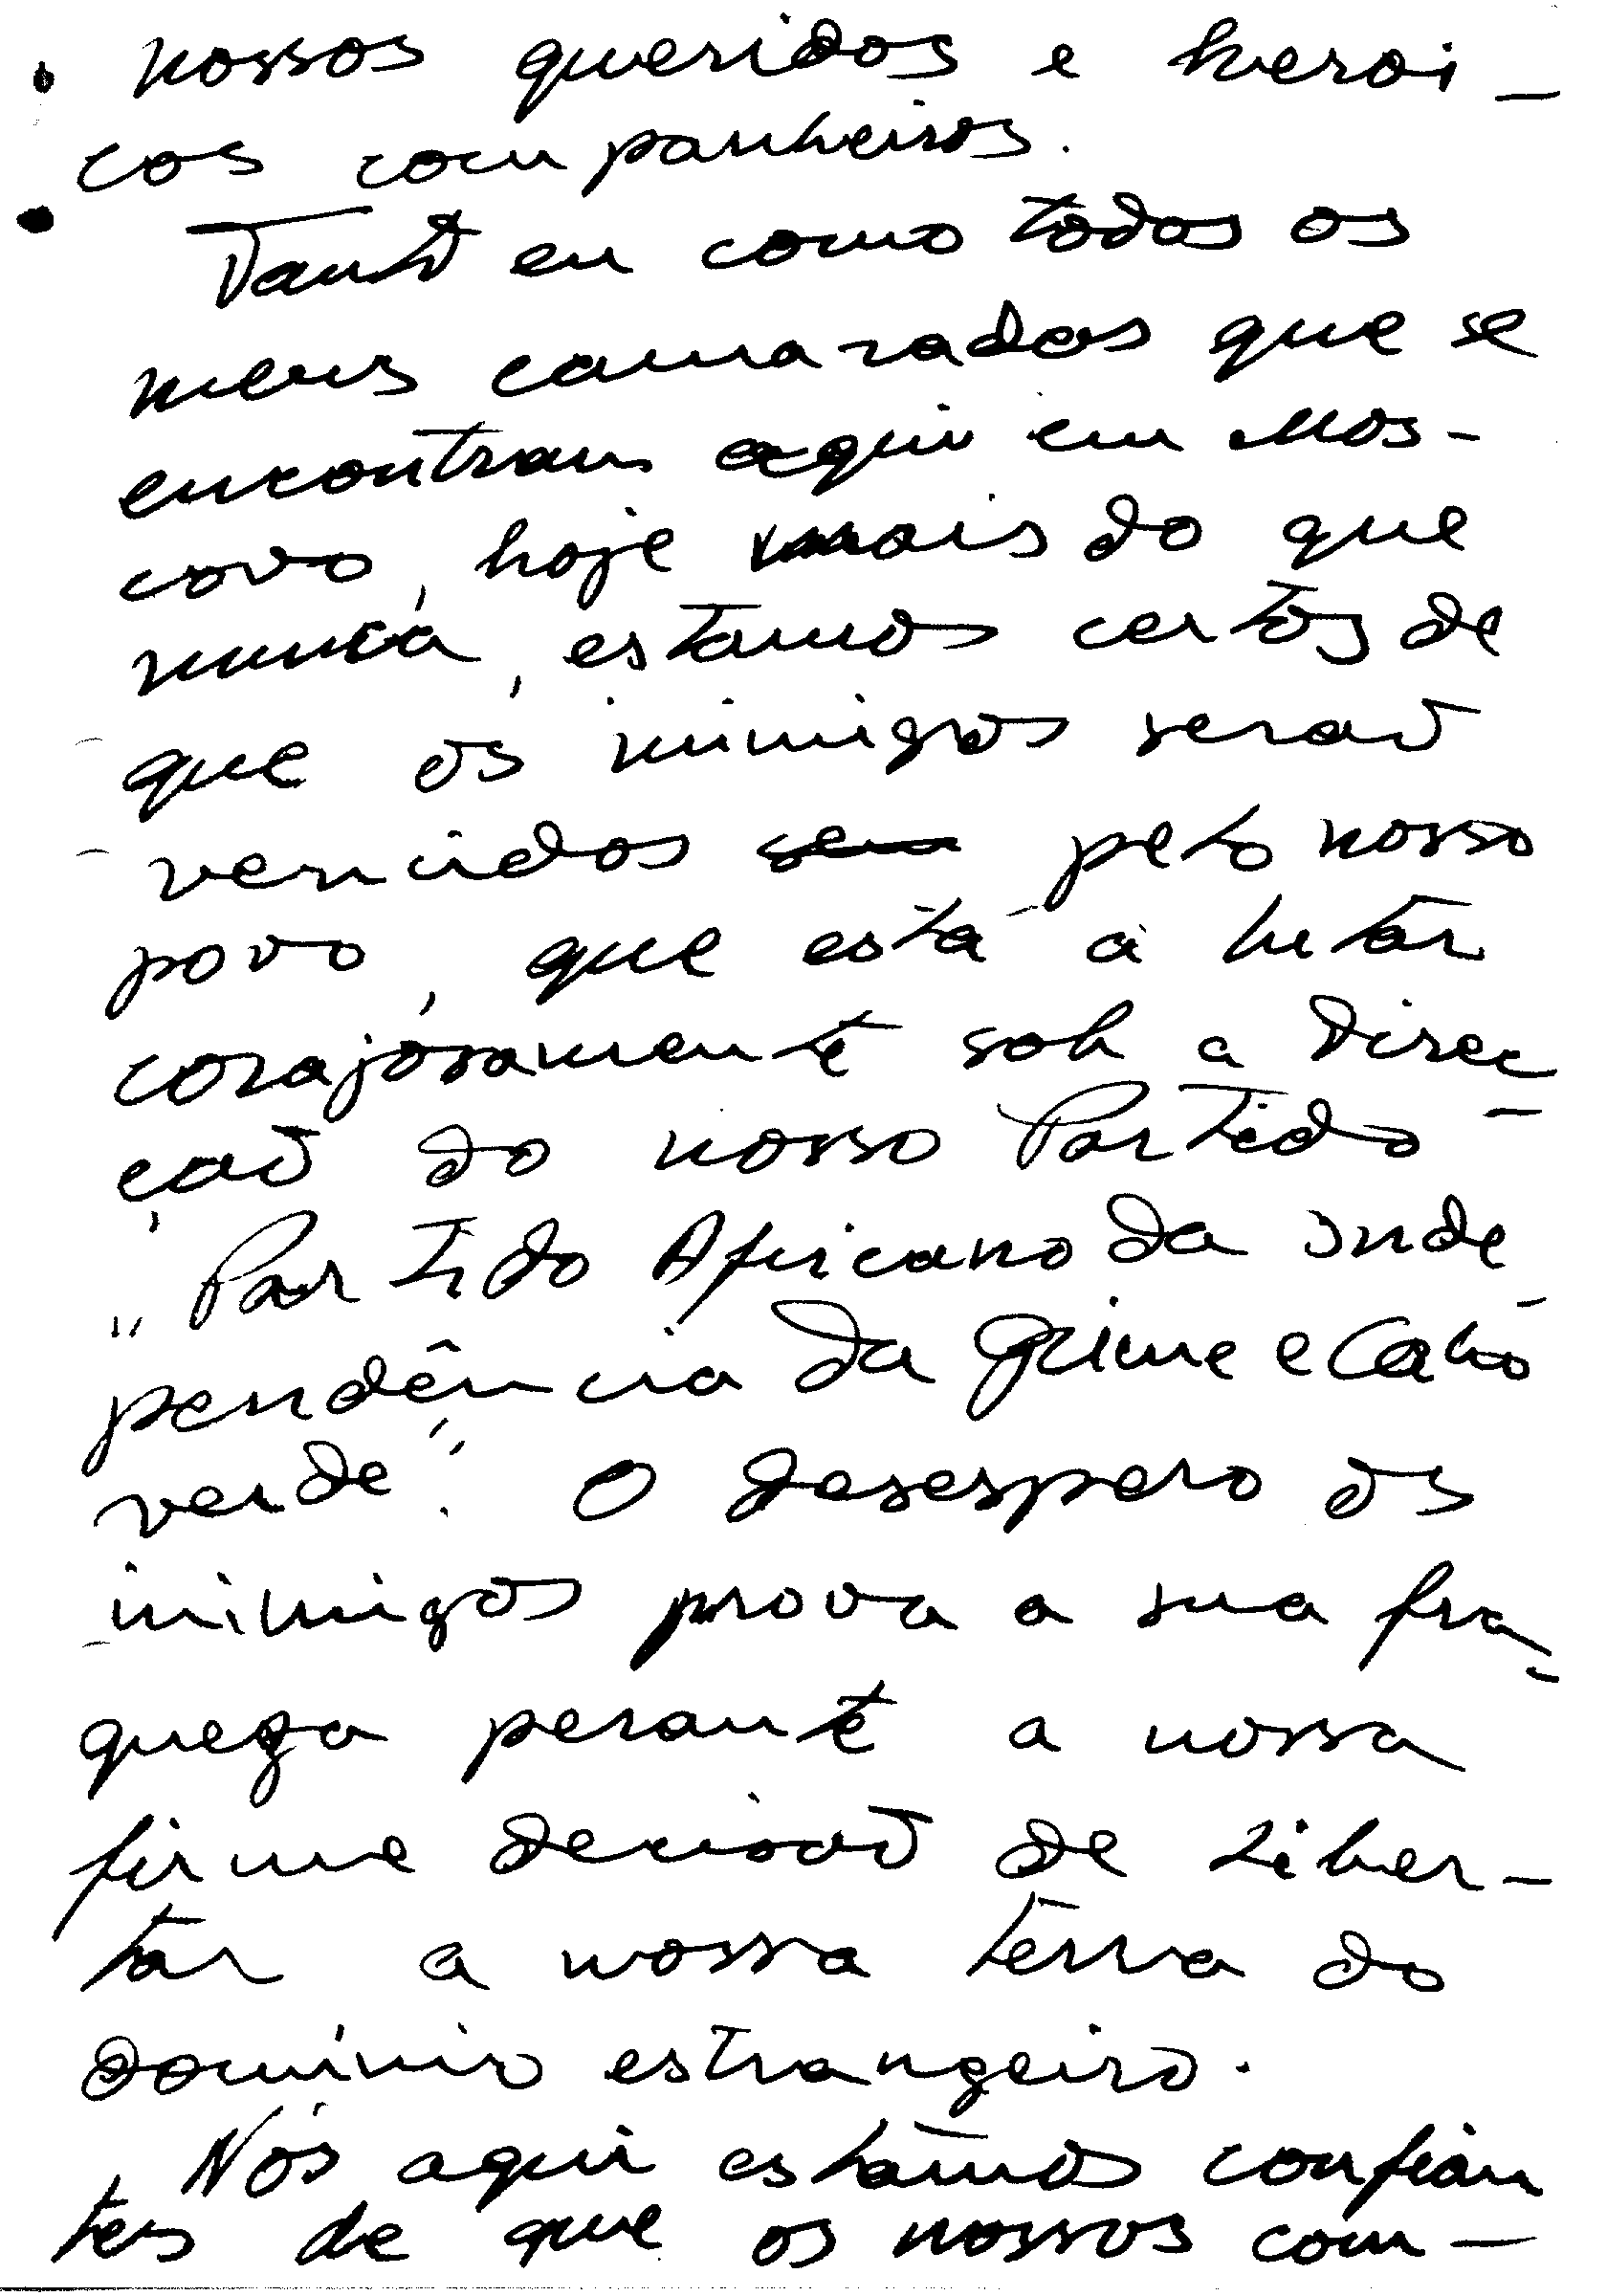 nossos queridos e heroi-
cos companheiros.
Tanto eu como todos os
meus camaradas que se
encontram aqui em Mos-
covo, hoje mais do que
nunca, estamos certos de
que os inimigos serão
vencidos sem pelo nosso
povo, que está a lutar
corajosamente sob a direc-
ção do nosso Partido
"Partido Africano da Inde-
pendência da Guine e Cabo
verde". O desespero os
inimigos prova a sua fra-
queza perante a nossa
firme decisão de liber-
tar a nossa terra do
domínio estrangeiro.
Nós aqui estâmos confian
tes de que os nossos com-